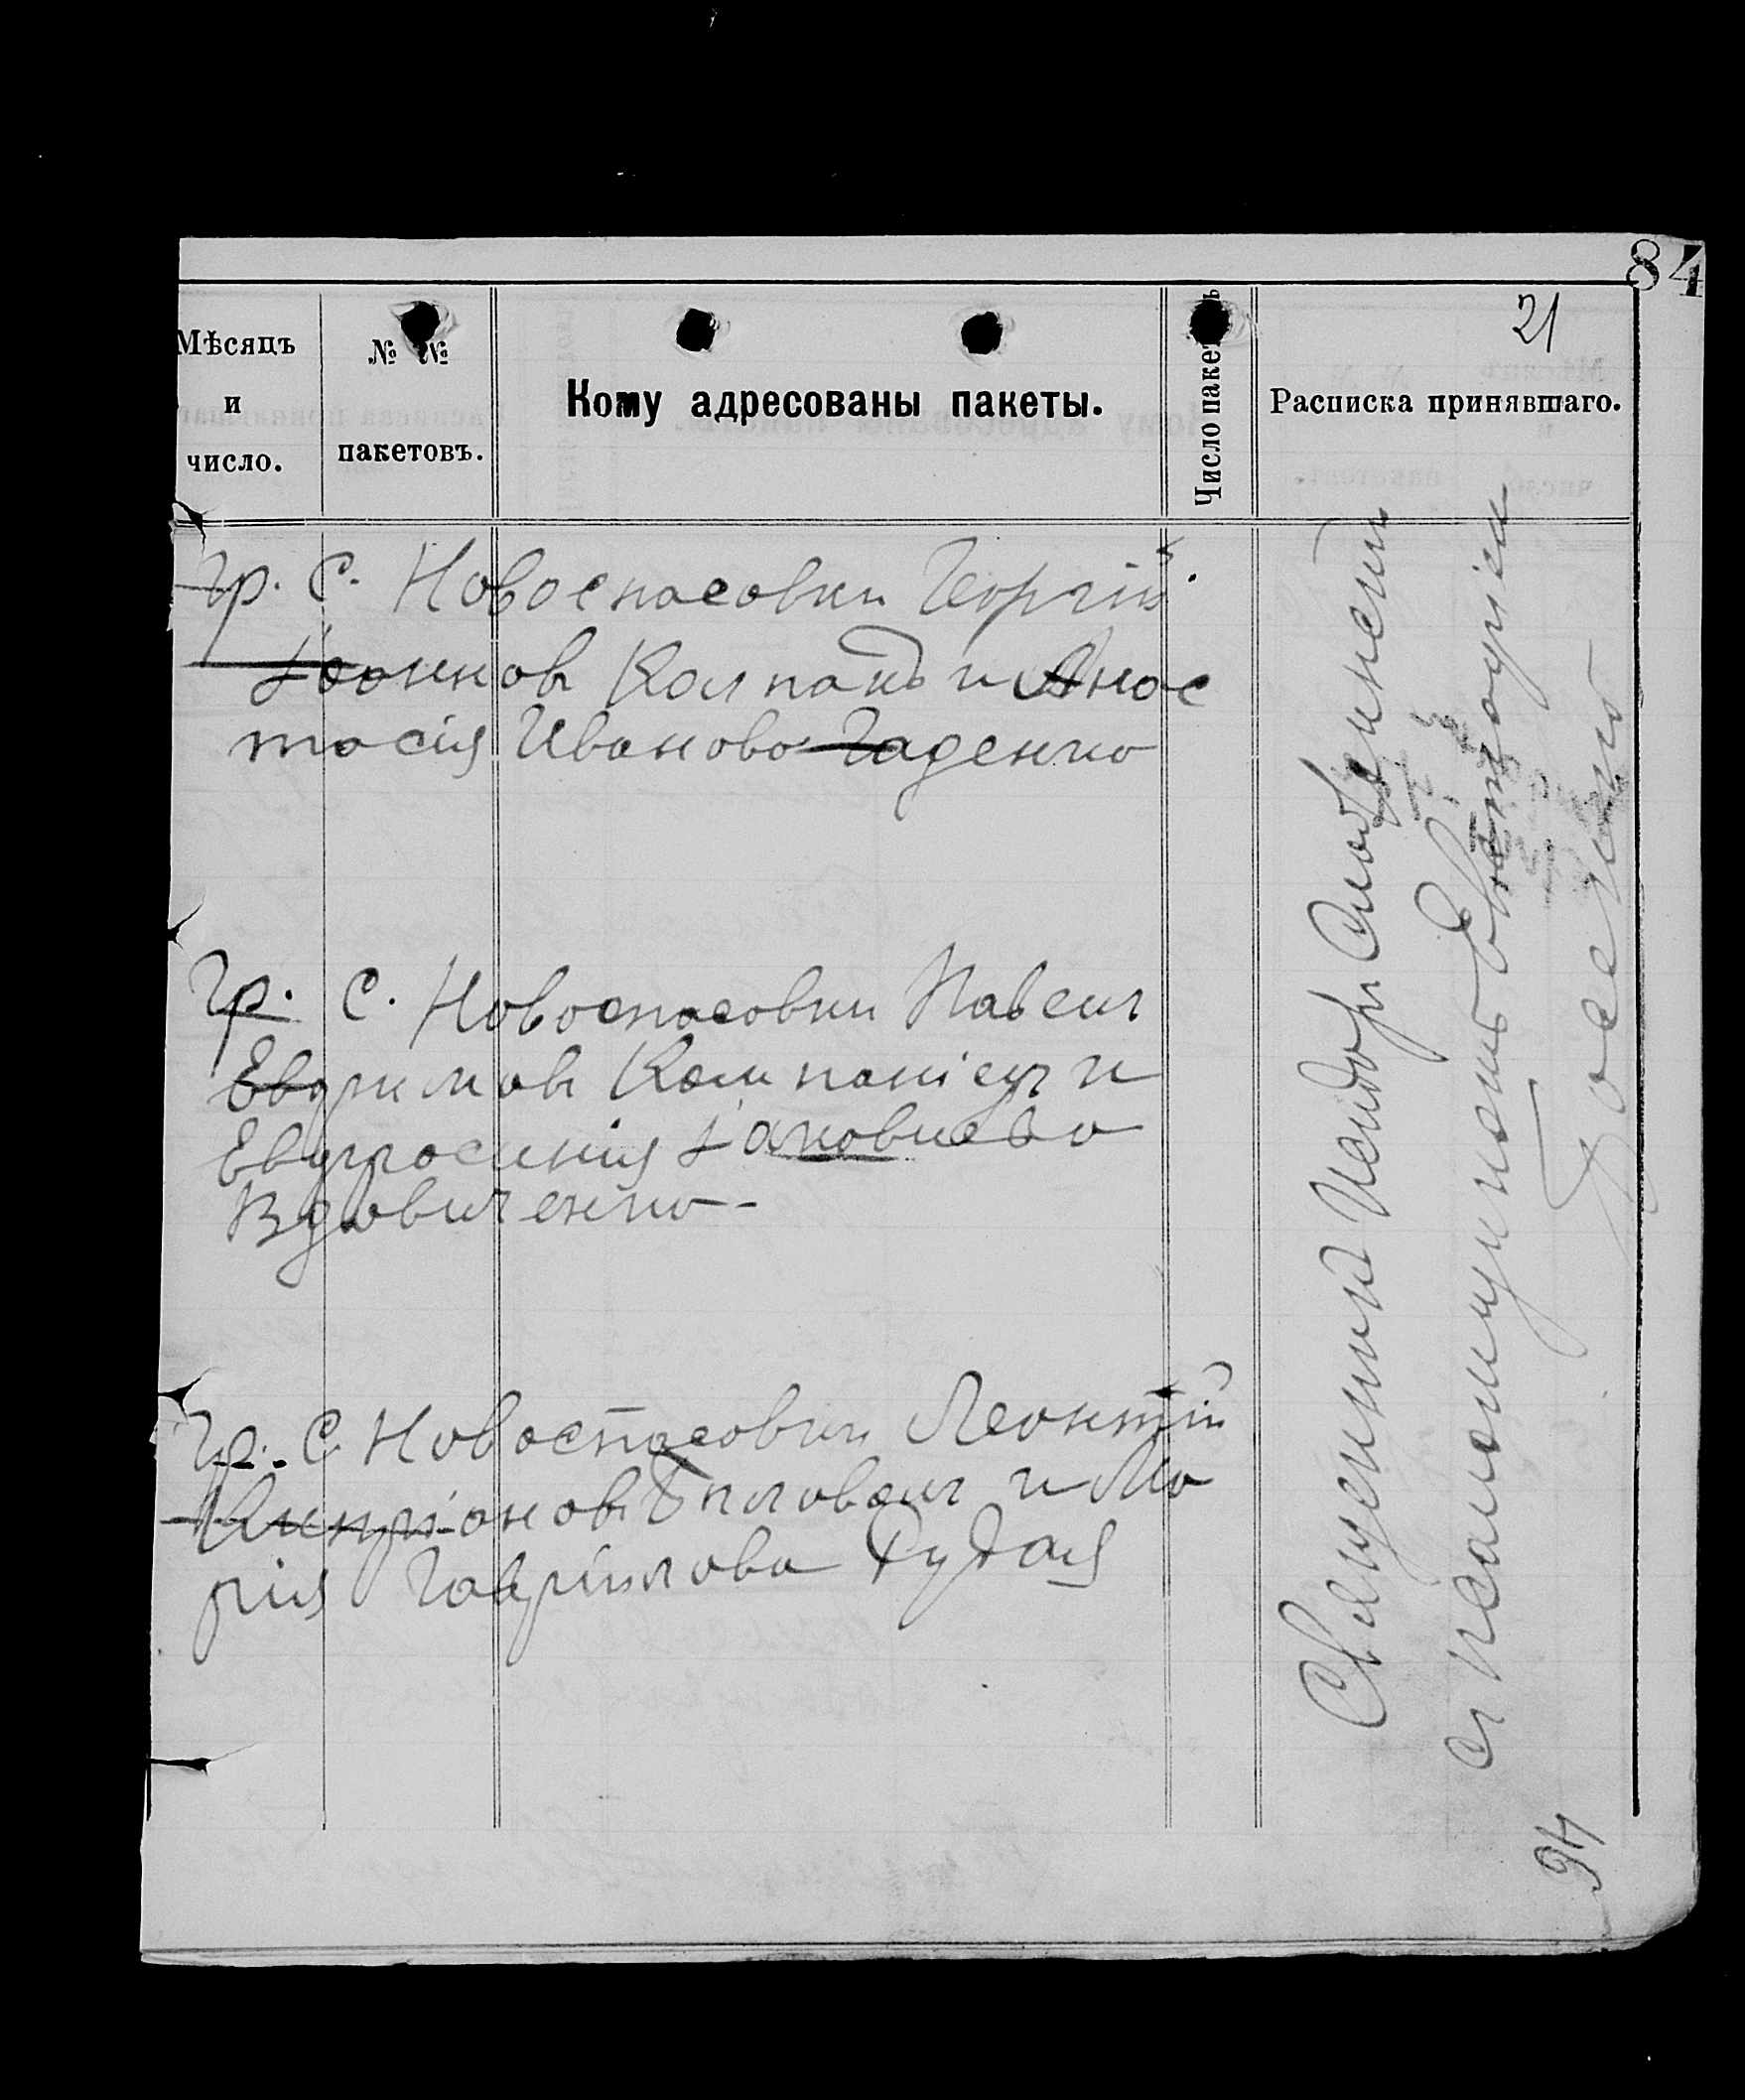 84
21
Мѣсяцъ
и
число.
№ №
пакетовъ.
Кому адресованы пакеты.
Число пакетовъ
Расписка принявшаго.
Гр. С. Новоспасовки Георгій
Іоаннов Колпакъ и Анас
тасія Иванова Гаденко
Гр. С. Новоспасовки Павел
Евфимов Компаніец и
Евфросинія Іаковлева
Вдовиченко -
Гр. С. Новоспасовки Леонтій
Кипріанов Биловол и Ма
рія Гавріилова Рудая
Священник Исидор
с псаломщиком Евстафіем
94